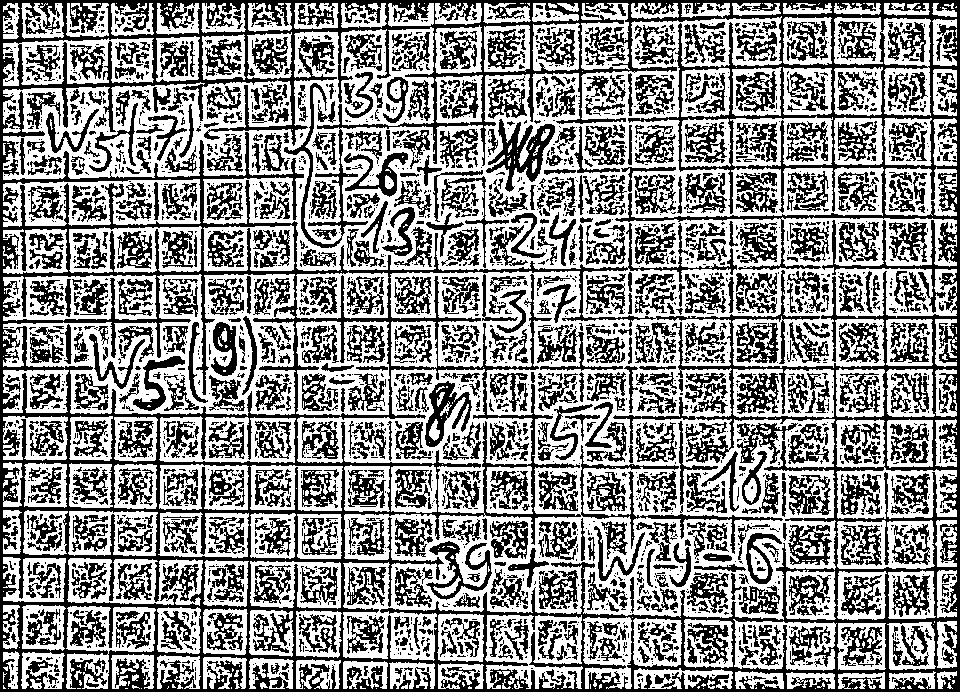 W5(7)= { 39
26+
13+ 24=
37
W5(9) =
52
18
39+ W(9-6